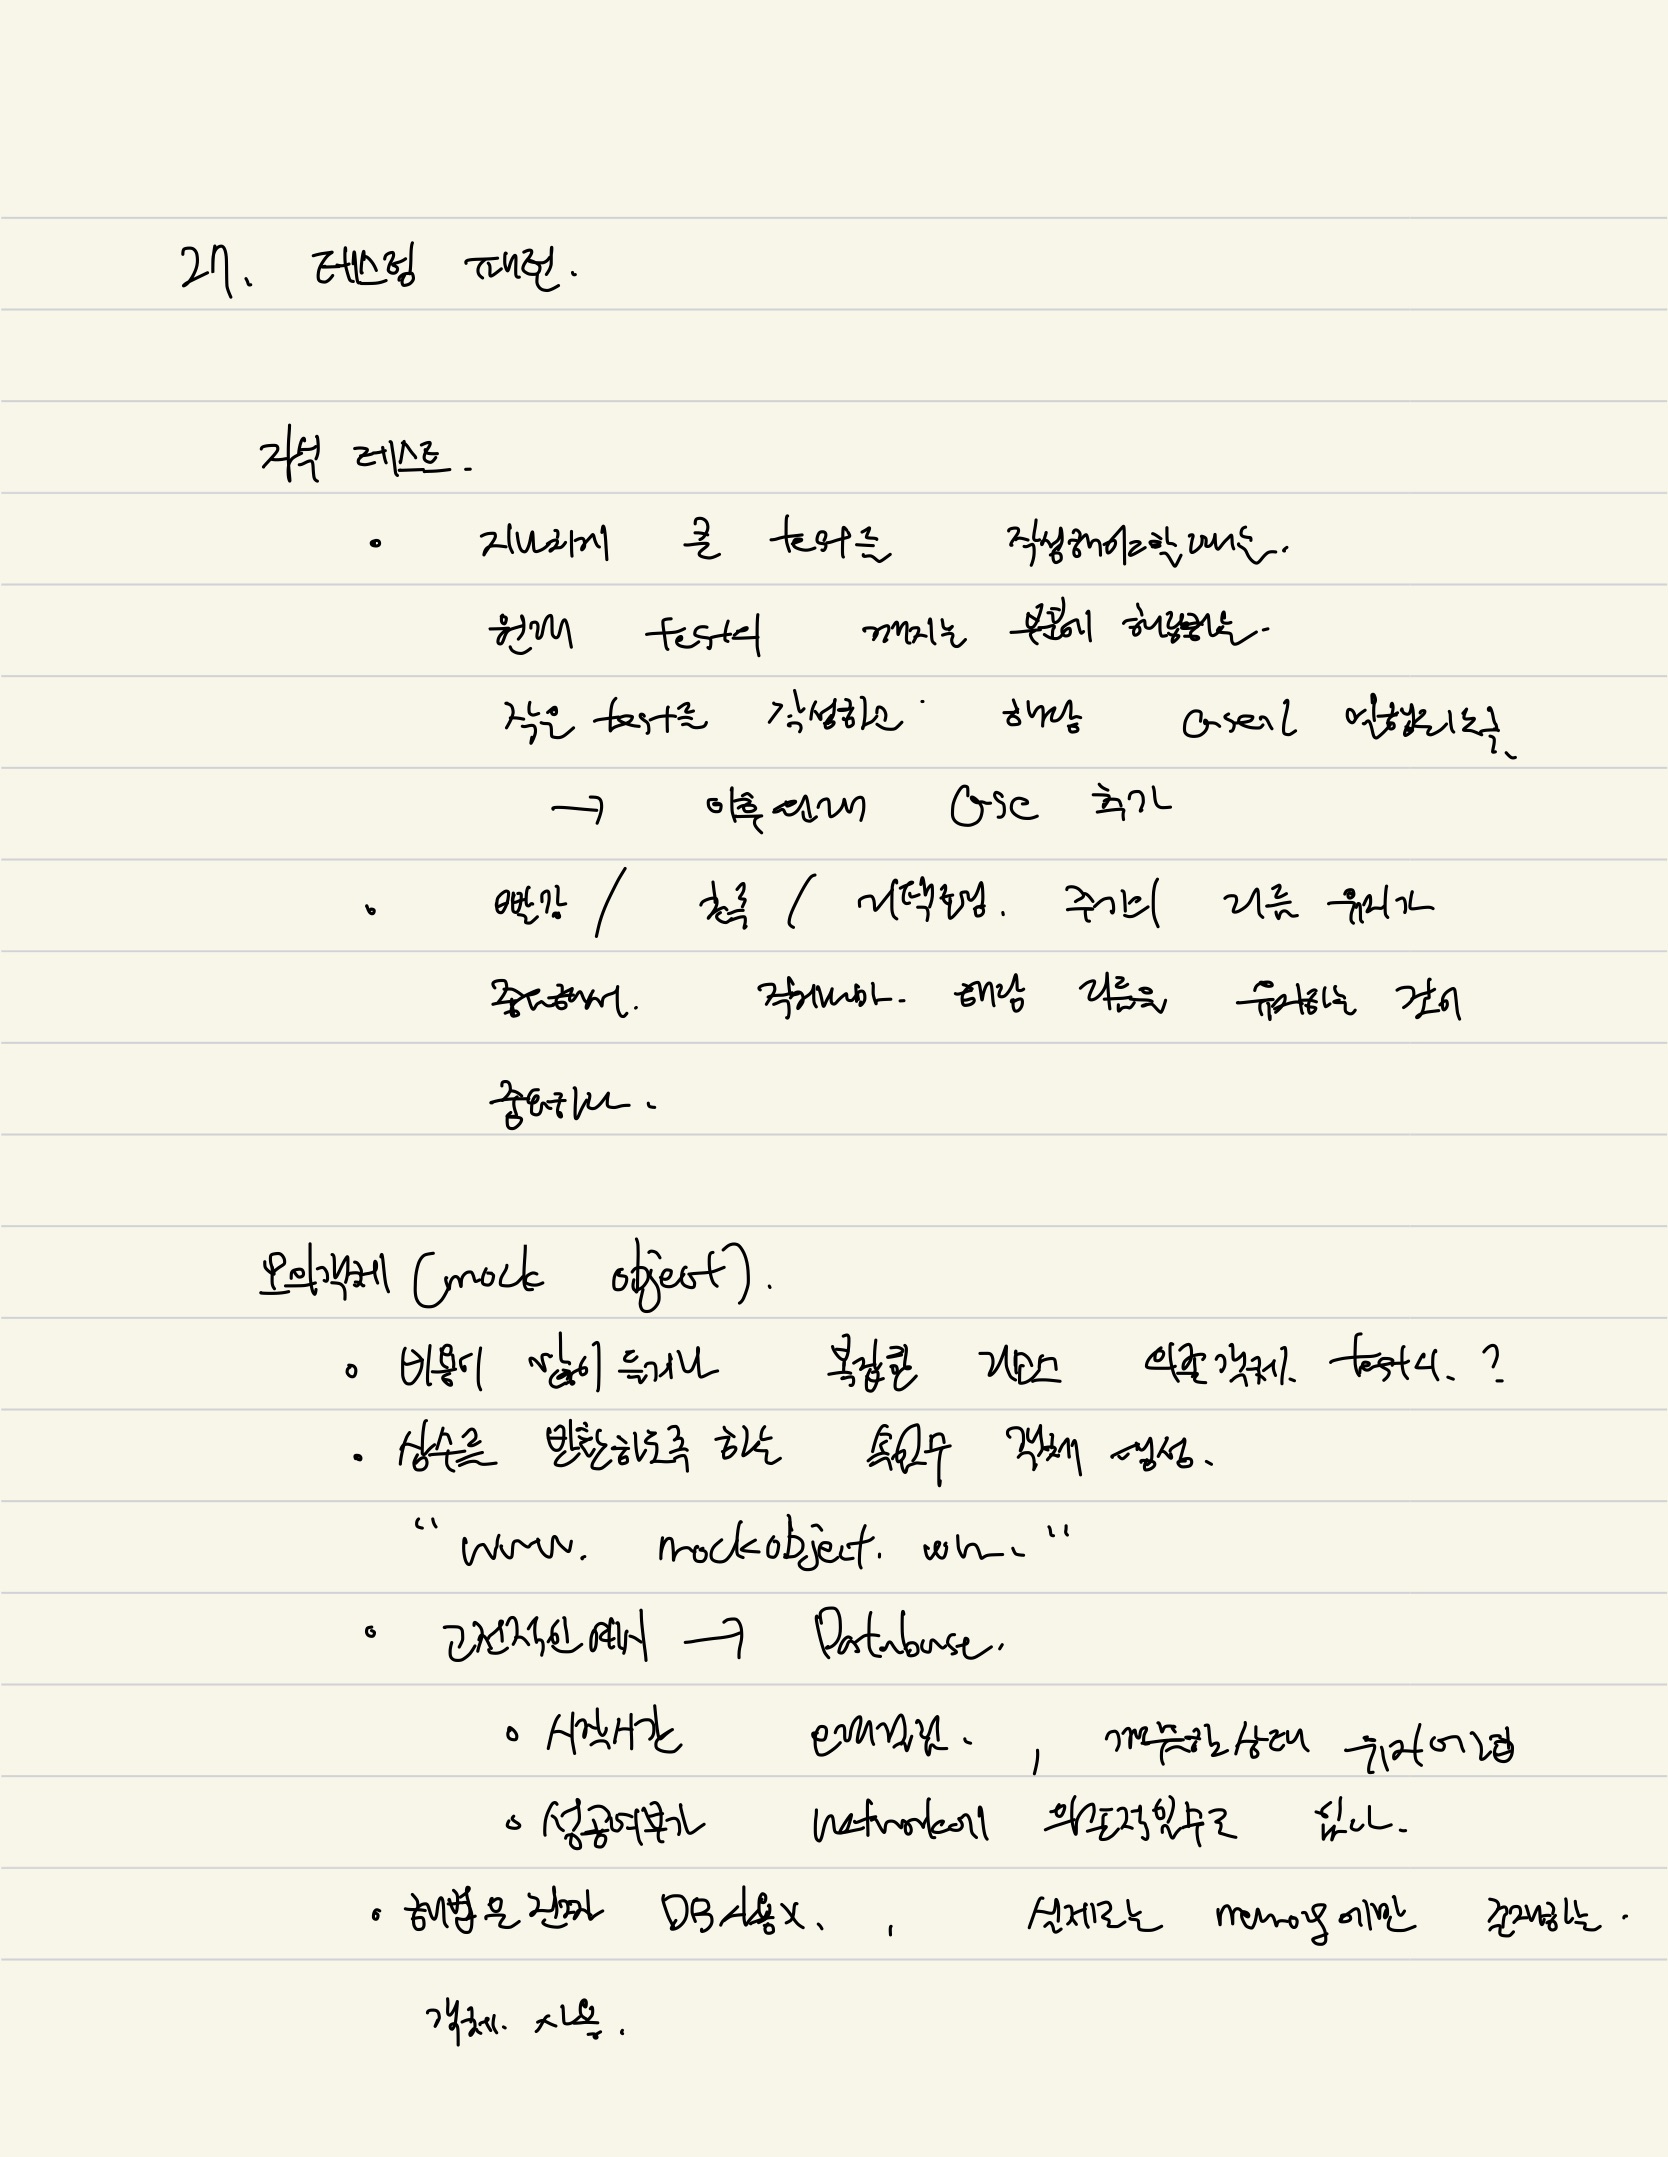 27. 테스팅 패턴.
자식 테스트.
• 지나치게 큰 test를 작성해야할때는.
원래 test의 깨지는 부분에 해당하는.
작은 test를 작성하고 해당 case가 실행되도록
→ 이후 원래 case 추가
• 빨강 / 초록 / 리팩토링. 주기의 리듬 유지가
중요해서. 작게나마. 해당 리듬을 유지하는 것이
중요하다.
모의객체 (mock object).
• 비용이 많이 들거나 복잡한 리소스 의존 객체. test시. ?
• 상수를 반환하도록 하는 속임수 객체 생성.
"www. mockobject. com."
• 고전적인 예시 → Database.
• 시작시간 오래걸림. , 깨끗한 상태 유지 어려움
• 성공여부가 network에 의존적일수도 있다.
• 해법은 진짜 DB사용X. , 실제로는 memory에만 존재하는.
객체. 사용.